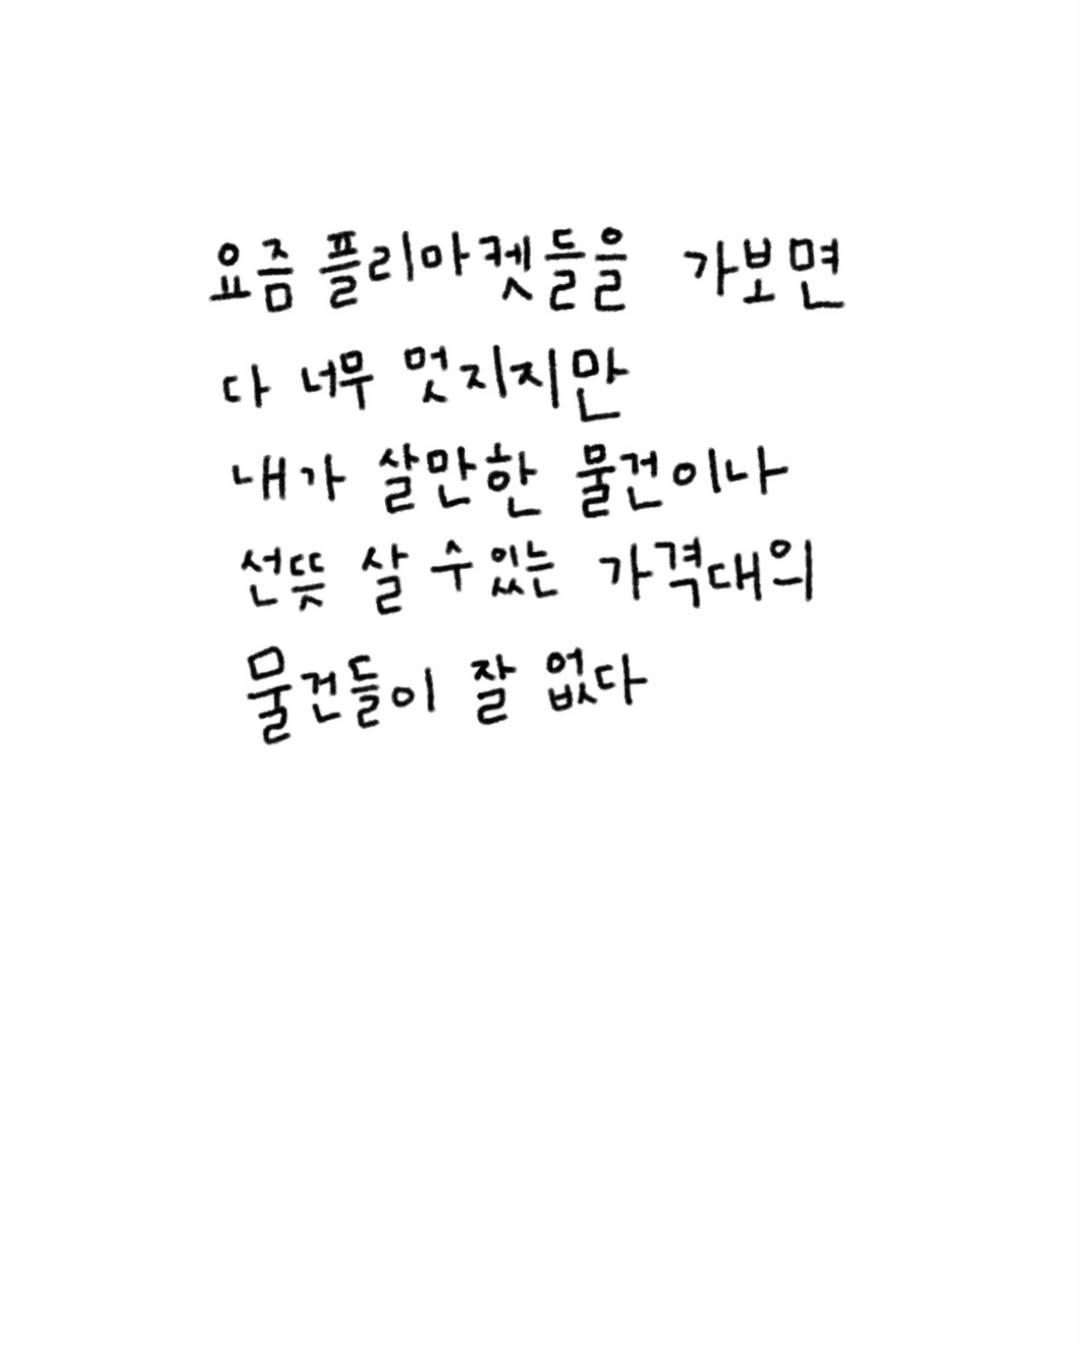 요즘 플리마켓들을 가보면
다 너무 멋지지만
내가 살만한 물건이나
선뜻 살 수 있는 가격대의
물건들이 잘 없다